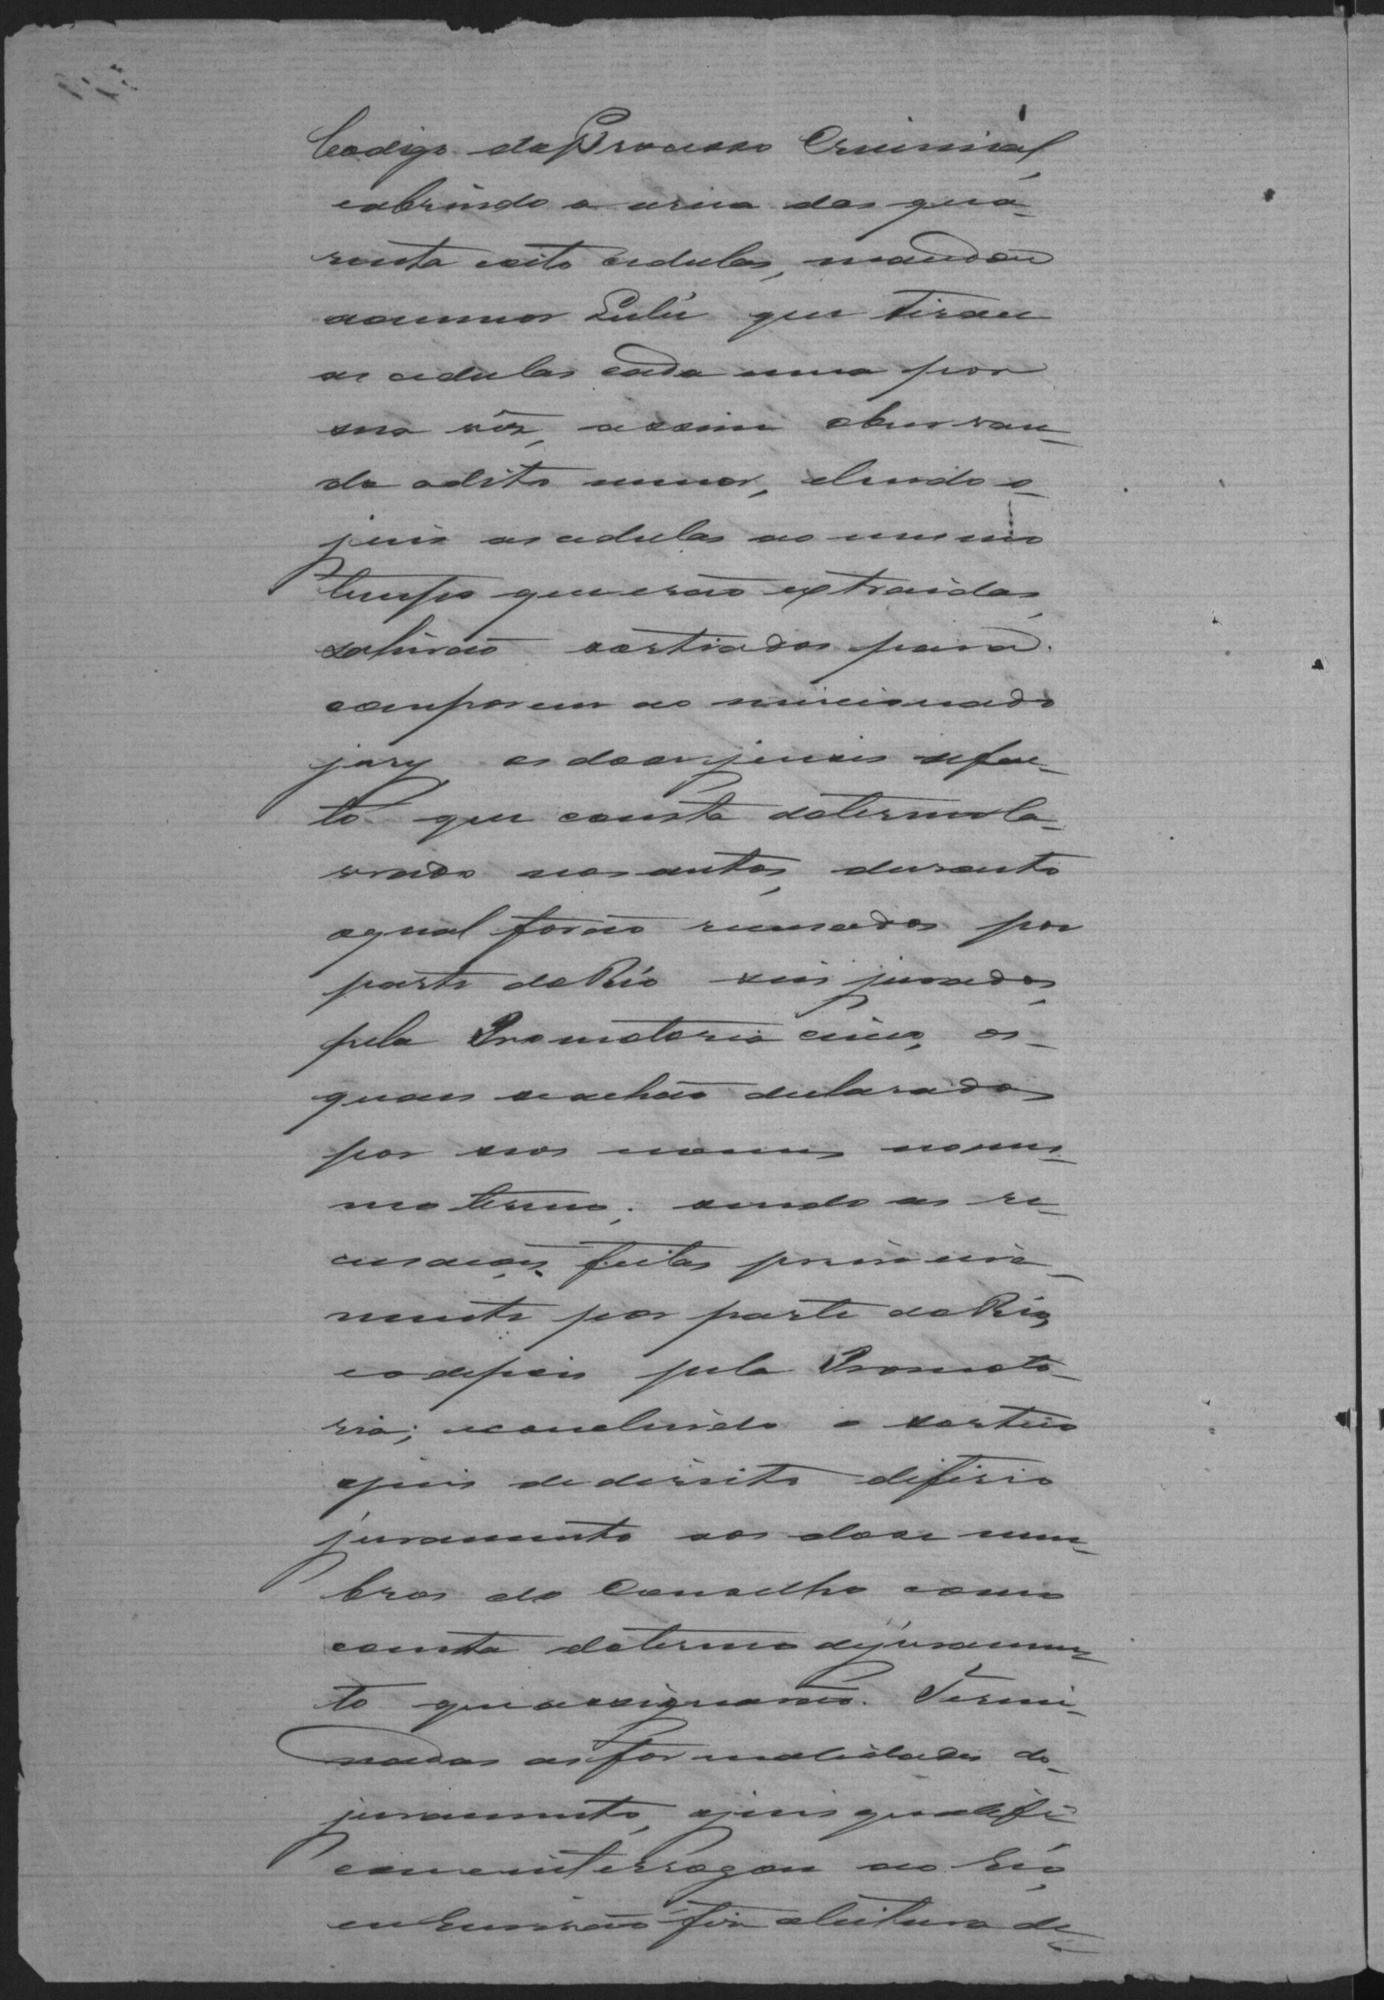 Codigo do Processo Criminal,
e abrindo a urna das qua-
renta e oito cedulas, mandou
ao menor Lulú que tirou
as cedulas cada uma por
sua vêz, e assim observan-
do o dito menor, e lendo o
juiz as cedulas ao mesmo
tempo que erão extraidas,
sahirão sortiados para
comporem ao mencionado
jury os doze juizes de fac-
to que consta do termo la-
vrado nos autos, durante
o qual forão recusados por
parte do Réo seis jurados,
pela Promotoria cinco, os
quaes se achão declarados
por seos nomes no mes-
mo termo; sendo as re-
cusações feitas primeira-
mente por parte do Réo,
e depois pela Promoto-
ria; e concluido o sorteio
o juiz de direito diferio
juramento aos doze mem-
bros do Conselho como
consta do termo de juramen-
to que assignarão. Termi-
nadas as formalidades do
juramento, o juiz qualifi-
cou e interrogou ao Réo,
eu Escrivão fiz a leitura de